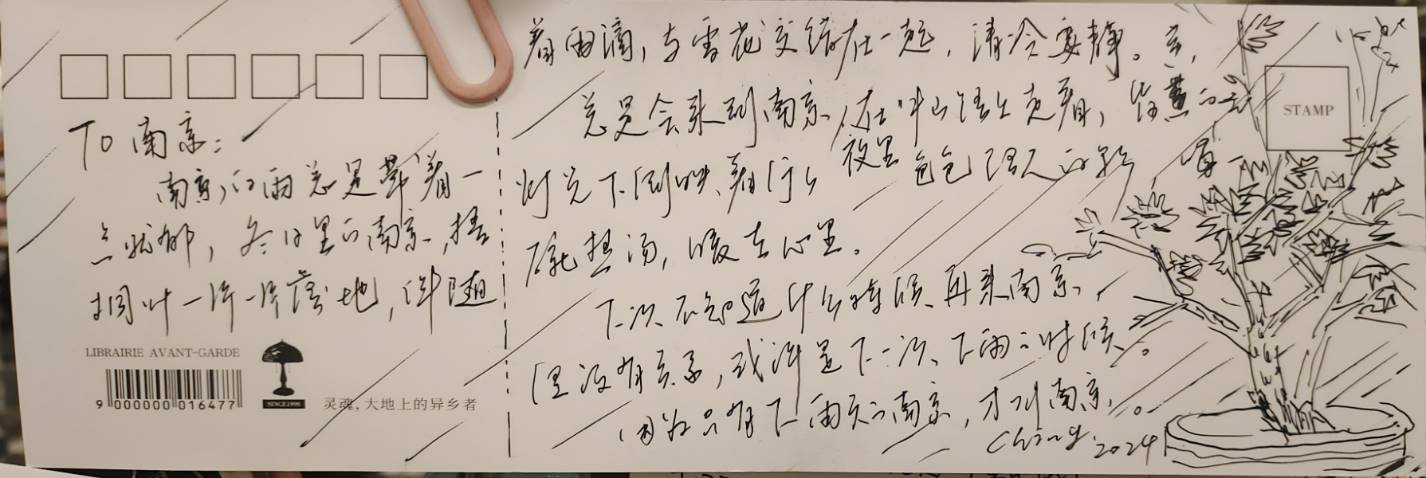 To 南京：
南京的雨总是带着一
点忧郁，冬日里的南京，梧
桐叶一片一片落地，伴随
LIBRAIRIE AVANT-GARDE
9 000000 016477
SINCE1996
灵魂，大地上的异乡者
着雨滴，与雪花交织在一起，清冷安静。
总是会来到南京，在中山路上走着，昏黄的
灯光下倒映着行人
夜里
暖在心里。
下次不知道什么时候再来南京，
但没有关系，或许是下一次下雨的时候。
因为只有下雨天的南京，才叫南京。
Ching 2024
STAMP